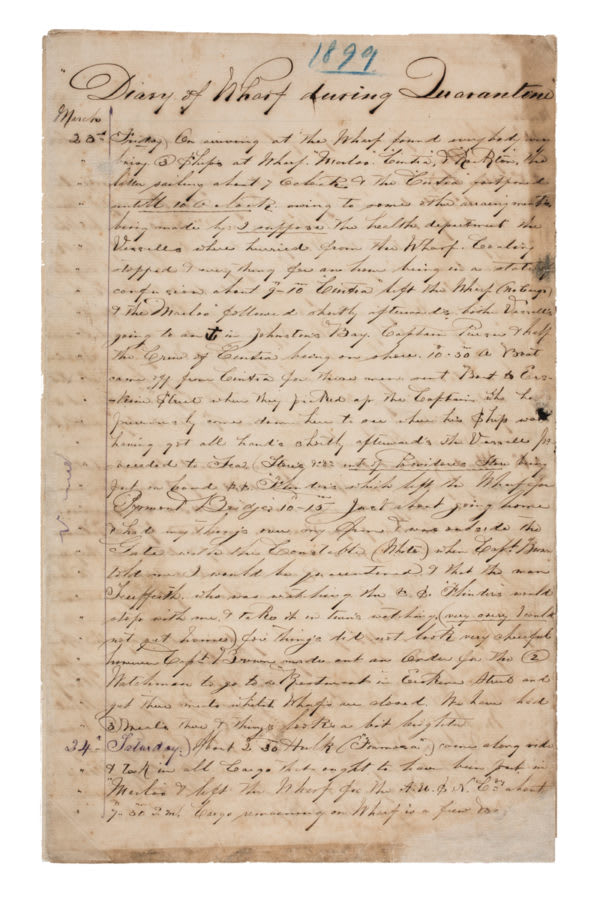 1899
"Diary of Wharf during Quarantine"
March
23rd Friday, On arriving at the Wharf found everything very
busy 3 Ships at Wharf. "Marloo" "Cintra" & the
latter sailing about 7 O'clock & the Cintra postponed
until 10 O'clock, owing to some other arrangements
being made by I suppose the health department the
Vessells where hurried from the Wharf. Coaling
stopped & everything for an hour being in a state
confusion about 9-10 "Cintra" left the Wharf (no Cargo)
& the "Marloo" followed shortly afterwards both Vessells
going to anc in Johnston's Bay. Captain & half
the Crew of Cintra being on shore. 10-30 a Boat
came off from Cintra for these men sent Boat to Ers-
kine Street where they picked up the Captain who had
previously come down here to see where his Ship was
having got all hands shortly afterwards the Vessells pro-
ceeded to Sea. (Stores out of Store being
put on board S.S. "Flinders" which left the Wharf for
Pyrmont Bridge 10-15 Just about going home
& had my things over my arm & was outside the
Gates with the Constable (White) when Capt. Brown
told me I would be quarantined & that the man
who was watching the S.S. Flinders would
stop with me & take it in turns watching (very sorry I could
not get home) for things did not look very cheerful
however Capt. Brown made out an Order for the (2)
Watchman to go to a Restaurant in Erskine Street and
get their meals whilst Wharfs are closed. We have had
3 meals there & things looks a bit brighter
24th Saturday. About 2-30 Hulk come along side
& took in all Cargo that ought to have been put in
"Marloo" & left the Wharf for the A.U.S.N. Co's about
7-30 p.m. Cargo remaining on Wharf is a few